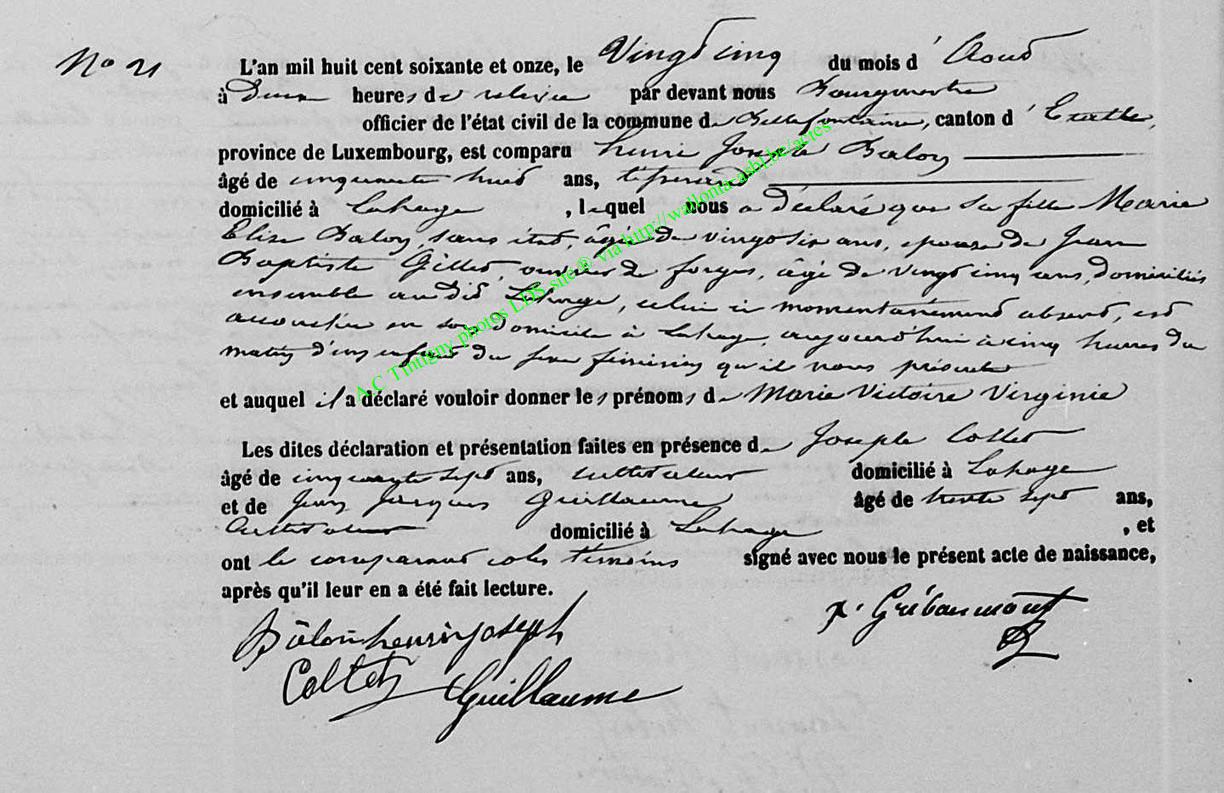 No 21
L'an mil huit cent soixante et onze, le Vingt cinq du mois d'Aout
à heures de relevée par devant nous Bourgmestre
officier de l'état civil de la commune de Bellefontaine, canton d'Etalle,
province de Luxembourg, est comparu henri Joseph Balon
âgé de cinquante huit ans, tisserand
domicilié à Lahage, lequel nous a déclaré que sa fille Marie
Elise Balon, sans état, âgée de vingt six ans, épouse de Jean
Baptiste Gillet, ouvrier de forges, âgé de vingt cinq ans, domiciliés
ensemble au dit Lahage, celui ci momentanément absent, est
accouchée en son domicile à Lahage, aujourd'hui à cinq heures du
matin d'un enfant du sexe féminin qu'il nous présente
et auquel il a déclaré vouloir donner les prénoms de Marie Victoire Virginie
Les dites déclaration et présentation faites en présence de Joseph Collet
âgé de cinquante sept ans, cultivateur domicilié à Lahage
et de Jean Jacques Guillaume âgé de trente sept ans,
Cultivateur domicilié à Lahage, et
ont le comparant et les témoins signé avec nous le présent acte de naissance,
après qu'il leur en a été fait lecture.
Balon henri joseph
Collet Guillaume
Gribaumont
A.C Tintigny photos LDS site® via http://wallonia.asbl.be/actes